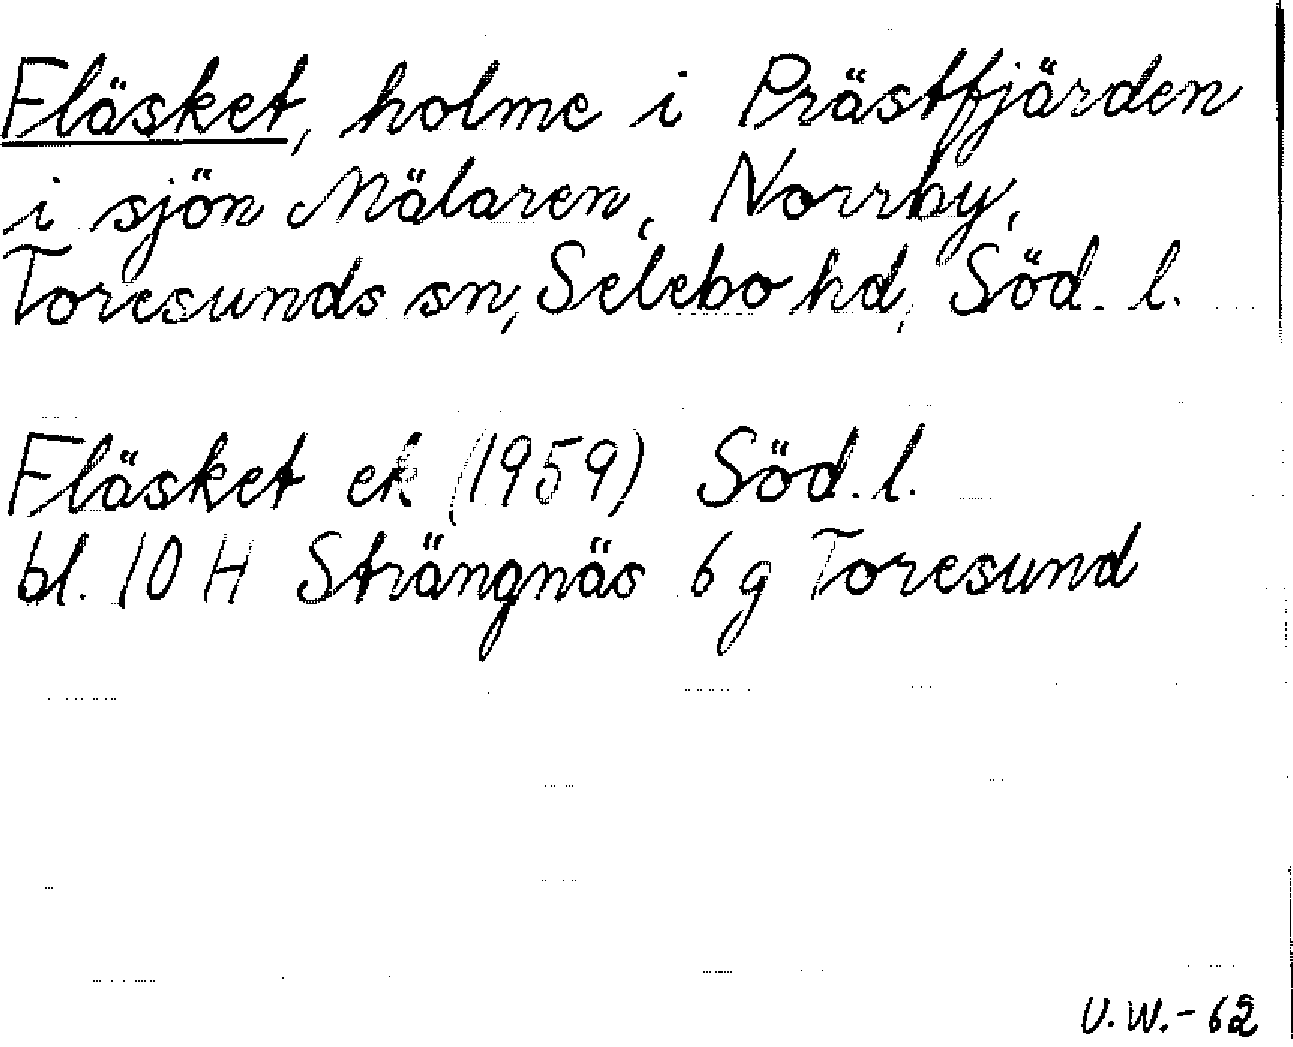 Fläsket, holme i Prästfjärden
i sjön Mälaren, Norrby,
Toresunds sn, Selebo hd, Söd. l.
Fläsket ek (1959) Söd. l.
bl. 10 H Strängnäs 6 g Toresund
U. W. - 62